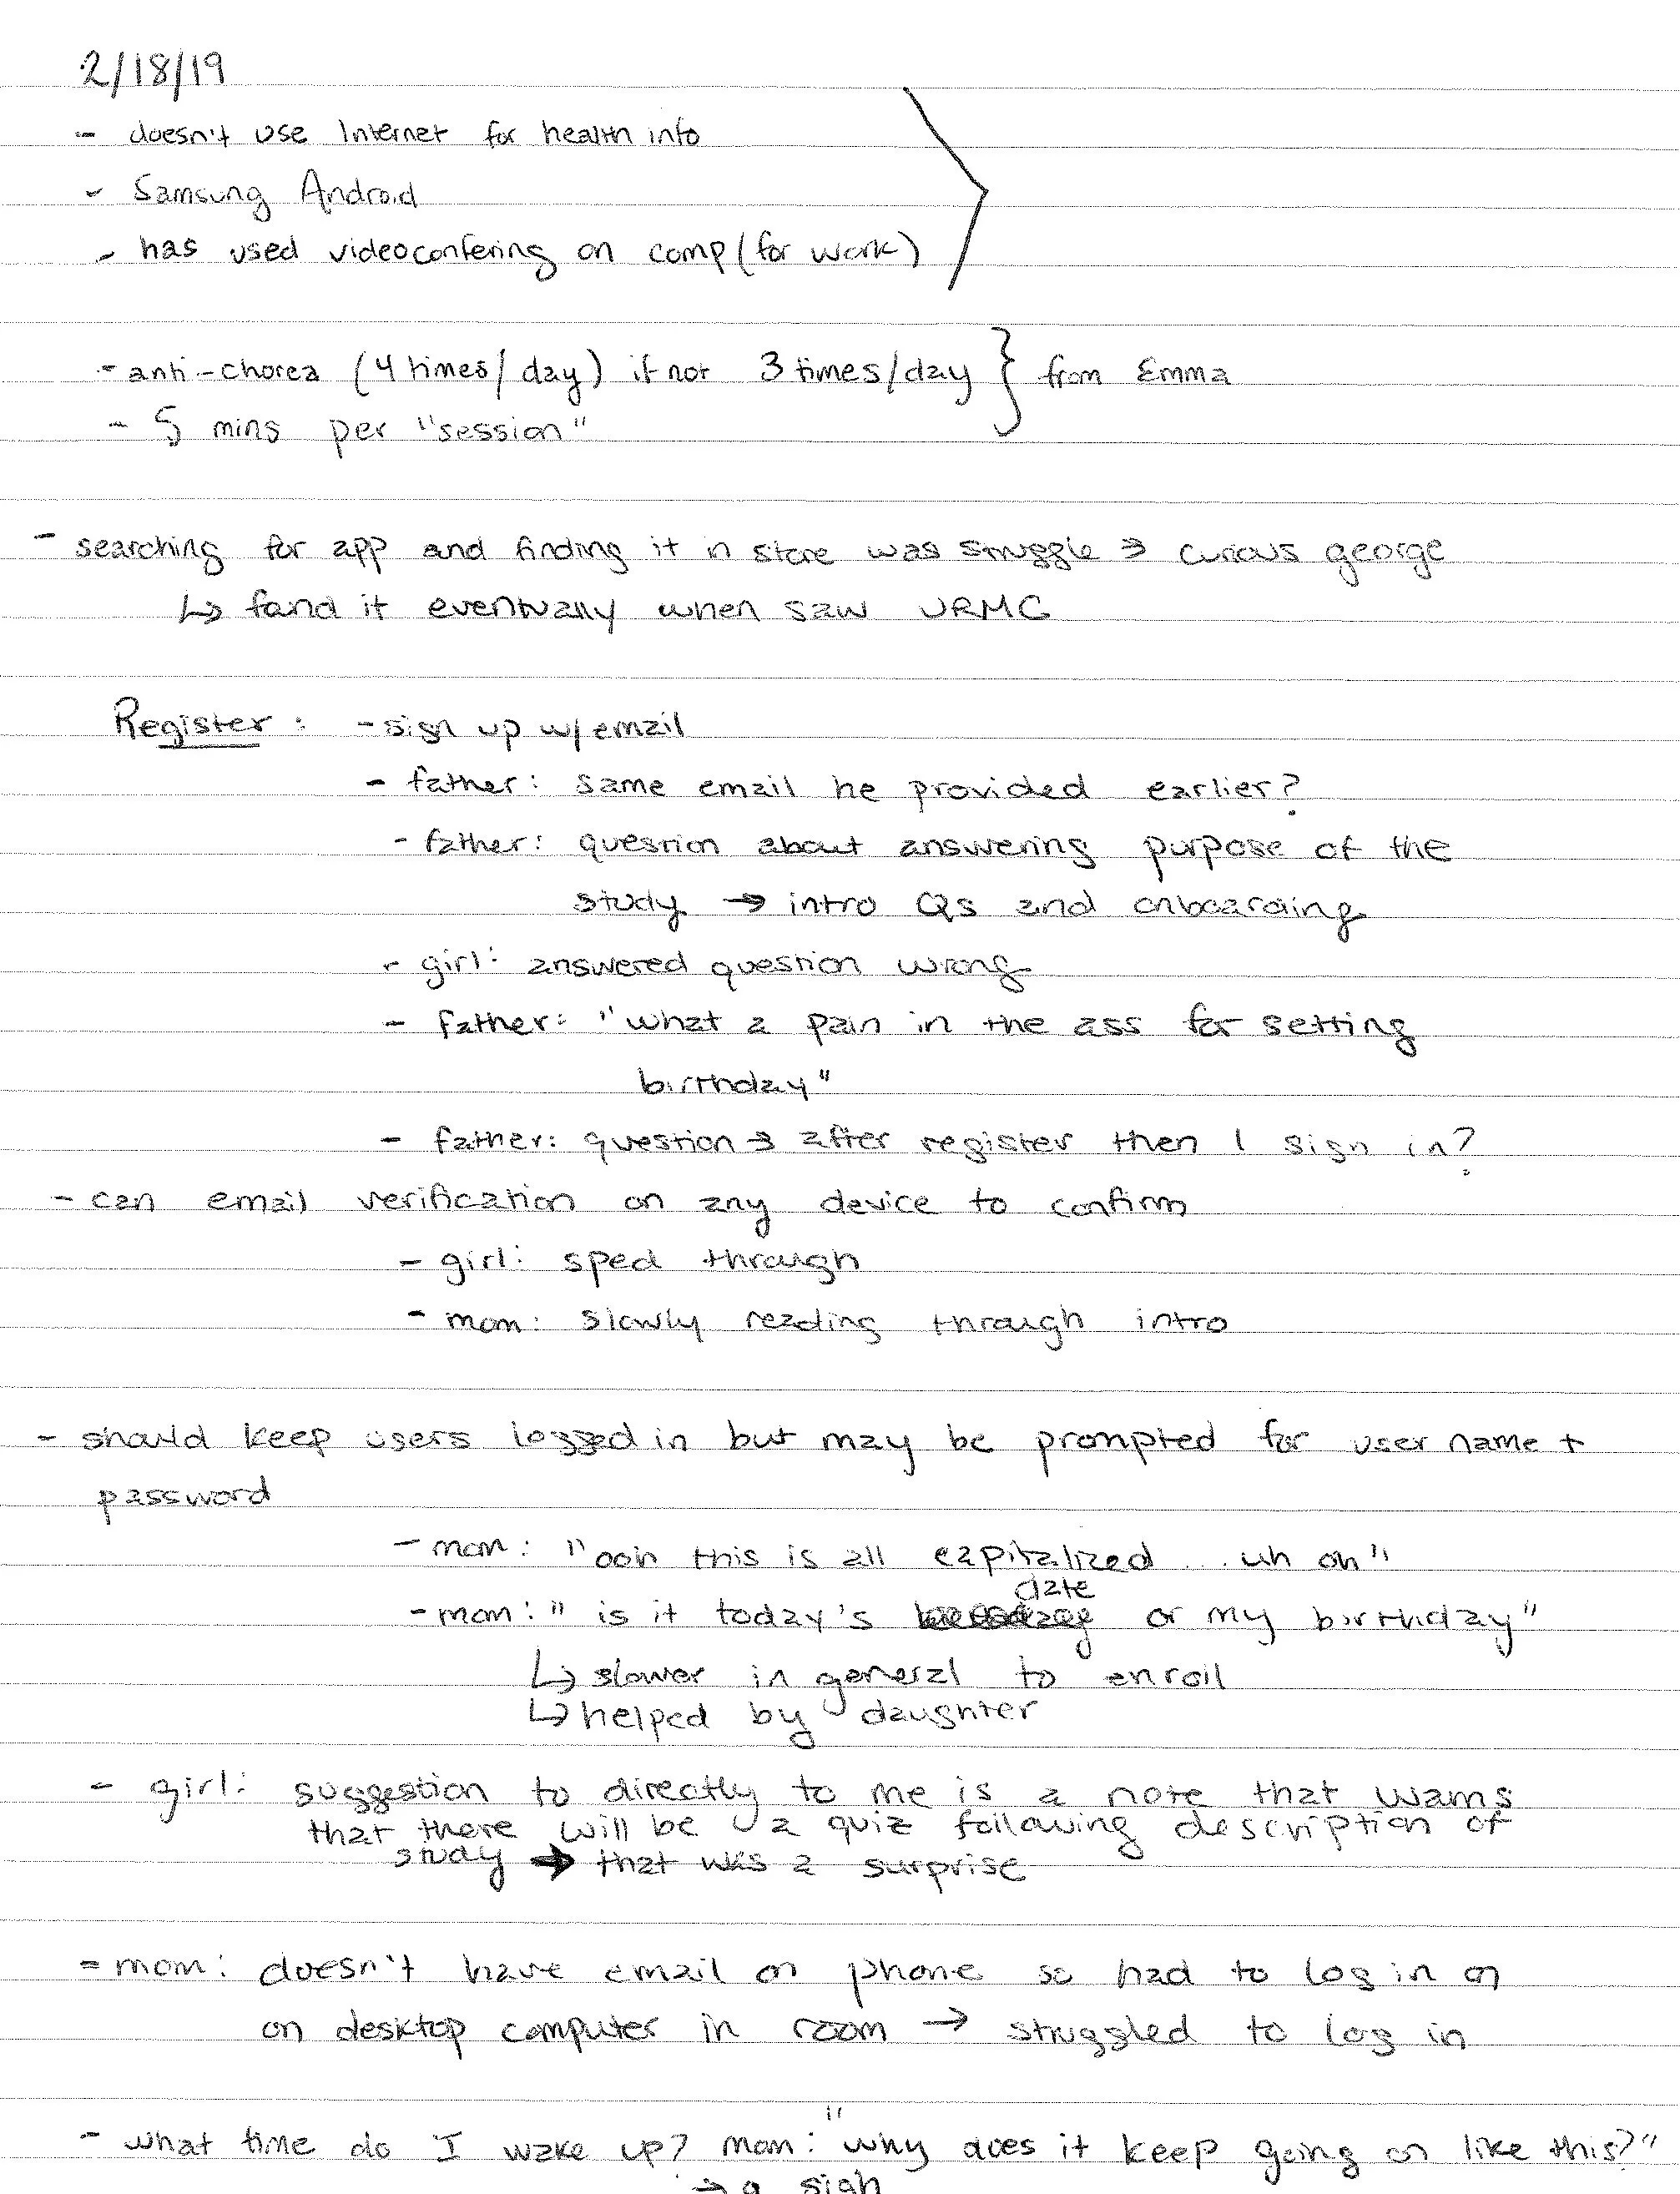 2/18/19
- doesn't use Internet for health info
- Samsung Android
- has used videoconfering on comp (for work)
- anti-chorea (4 times/day) if not 3 times/day } from Emma
- 5 mins per "session"
- searching for app and finding it in store was struggle → curious george
↳ found it eventually when saw URMC
Register: - sign up w/ email
- father: same email he provided earlier?
- father: question about answering purpose of the
study → intro Qs and onboarding
- girl: answered question wrong
- father: "what a pain in the ass for setting
birthday"
- father: question → after register then I sign in?
- can email verification on any device to confirm
- girl: sped through
- mom: slowly reading through intro
- should keep users logged in but may be prompted for user name +
password
- mom: "ooh this is all capitalized... uh oh"
- mom: "is it today's date or my birthday"
↳ slower in general to enroll
↳ helped by daughter
- girl: suggestion to directly to me is a note that warns
that there will be a quiz following description of
study → that was a surprise
- mom: doesn't have email on phone so had to log in on
on desktop computer in room → struggled to log in
- what time do I wake up? mom: "why does it keep going on like this?"
→ a sigh